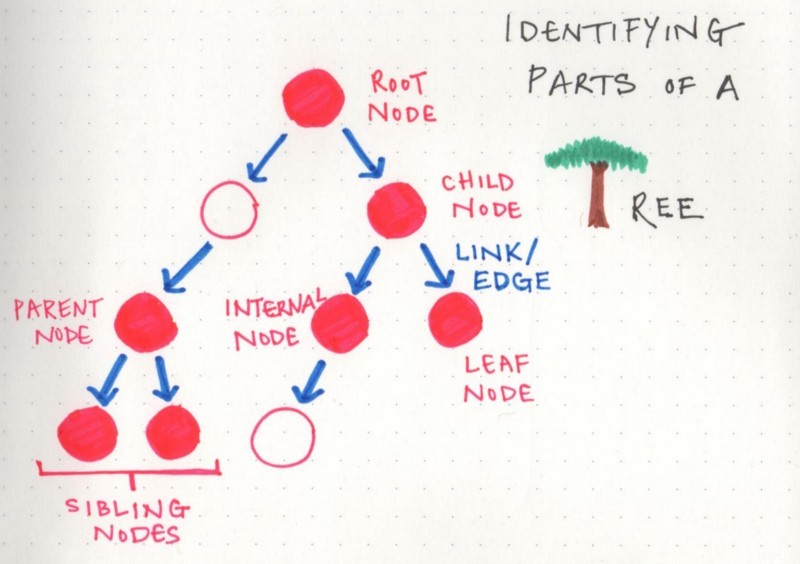 IDENTIFYING
PARTS OF A
REE
ROOT
NODE
CHILD
NODE
LINK/
EDGE
PARENT
NODE
INTERNAL
NODE
LEAF
NODE
SIBLING
NODES